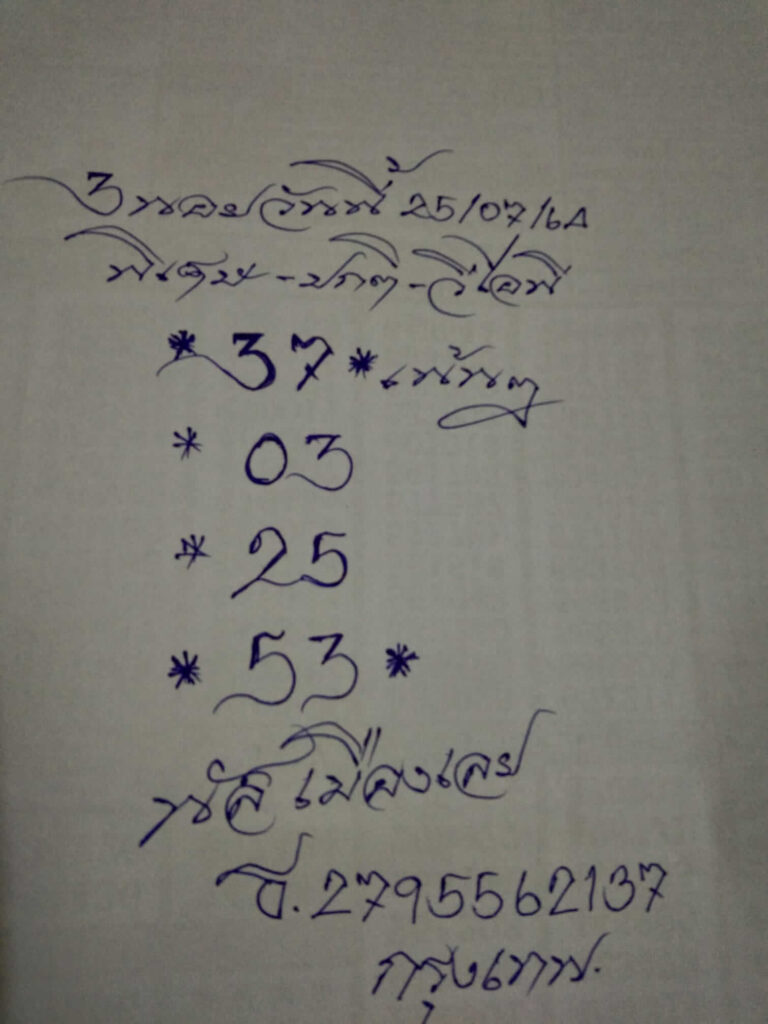 3 นอยวันนี้ 25/07/64
พิเศษ-ปกติ-วีไอพี
* 37 * เน้นๆ
* 03
* 25
* 53 *
นัส เมืองเลย
ธ.2795562137
กรุงเทพ.